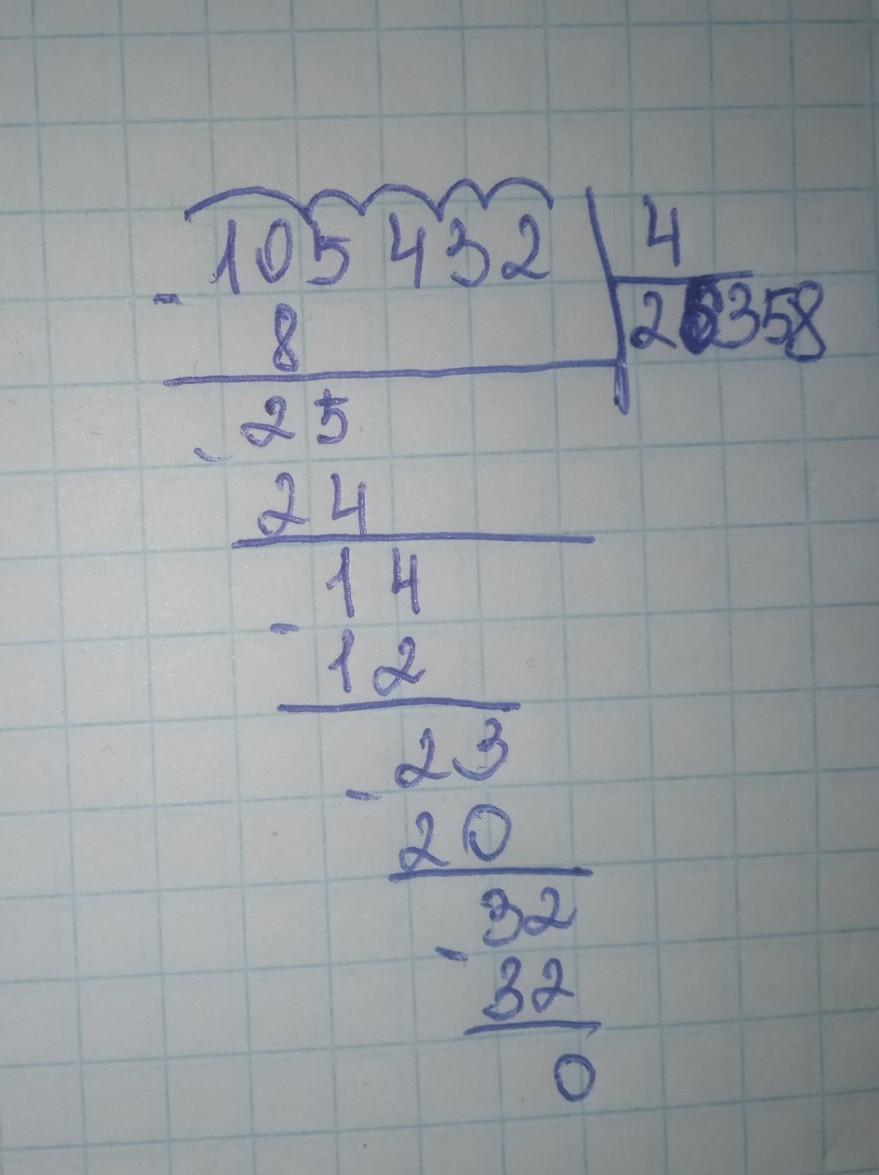 105 432 4
- 8 26358
25
- 24
14
- 12
23
- 20
32
- 32
0